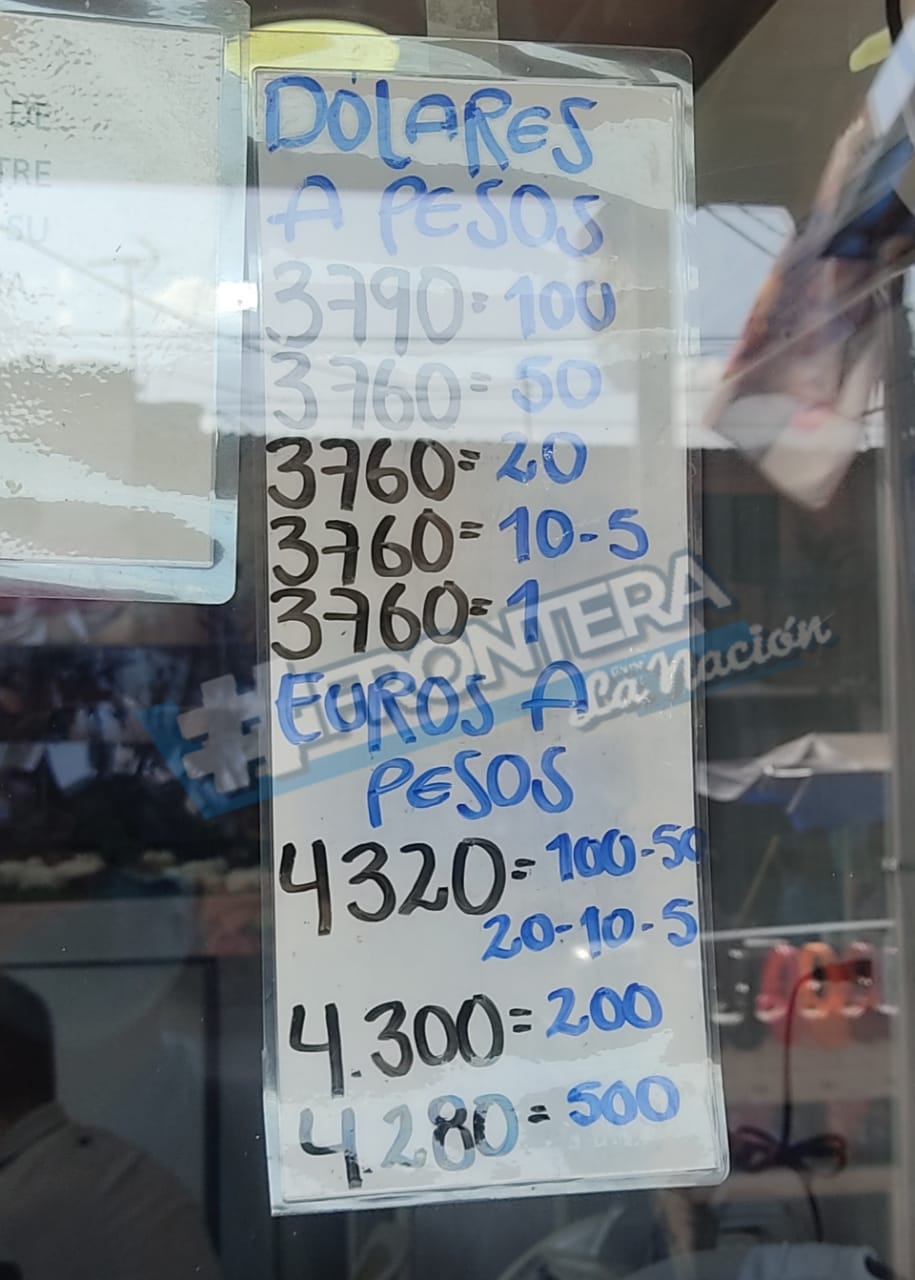 DE
TRE
SU
A
DÓLARES
A PESOS
3790= 100
3760= 50
3760= 20
3760= 10-5
3760= 1
#FRONTERA
La Nación
EUROS A
PESOS
4320= 100-50
20-10-5
4.300= 200
4.280= 500